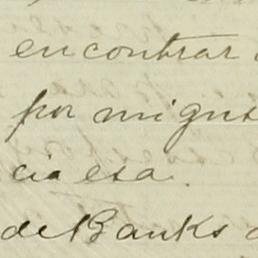 encontrar
por mi gus
cia esa.
de Banks